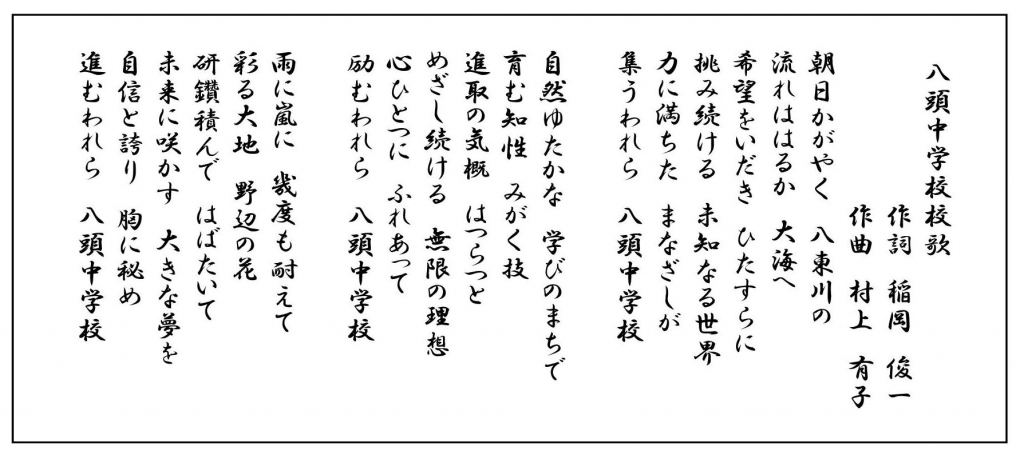 八頭中学校校歌
作詞 稲岡 俊一
作曲 村上 有子
朝日かがやく 八東川の
流れははるか 大海へ
希望をいだき ひたすらに
挑み続ける 未知なる世界
力に満ちた まなざしが
集うわれら 八頭中学校
自然ゆたかな 学びのまちで
育む知性 みがく技
進取の気概 はつらつと
めざし続ける 無限の理想
心ひとつに ふれあって
励むわれら 八頭中学校
雨に嵐に 幾度も耐えて
彩る大地 野辺の花
研鑽積んで はばたいて
未来に咲かす 大きな夢を
自信と誇り 胸に秘め
進むわれら 八頭中学校